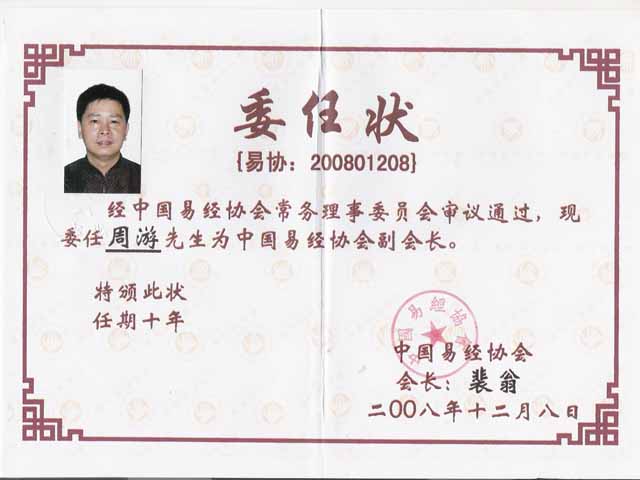 委任状
{易协：200801208}
经中国易经协会常务理事委员会审议通过，现
委任周游先生为中国易经协会副会长。
特颁此状
任期十年
中国易经协会
中国易经协会
会长：裴翁
二〇〇八年十二月八日